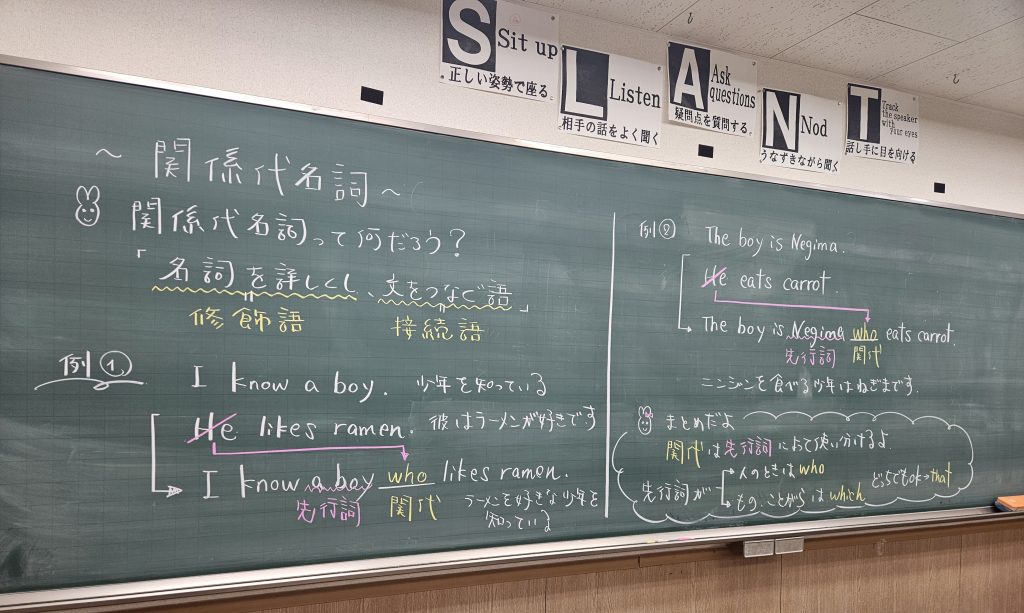 S Sit up
正しい姿勢で座る
L Listen
相手の話をよく聞く
A Ask questions
疑問点を質問する
N Nod
うなずきながら聞く
T Track the speaker with your eyes
話し手に目を向ける
～関係代名詞～
関係代名詞って何だろう？
「名詞を詳しくし、文をつなぐ語」
修飾語 接続語
例①
I know a boy. 少年を知っている
He likes ramen. 彼はラーメンが好きです
I know a boy who likes ramen.
先行詞 関代 ラーメンを好きな少年を
知っている
例②
The boy is Negima.
He eats carrot.
The boy is Negima who eats carrot.
先行詞 関代
ニンジンを食べる少年はねぎまです。
まとめだよ
関代は先行詞によって使い分けるよ
先行詞が
人のときは who
もの、ことがらは which どちらでもok→that